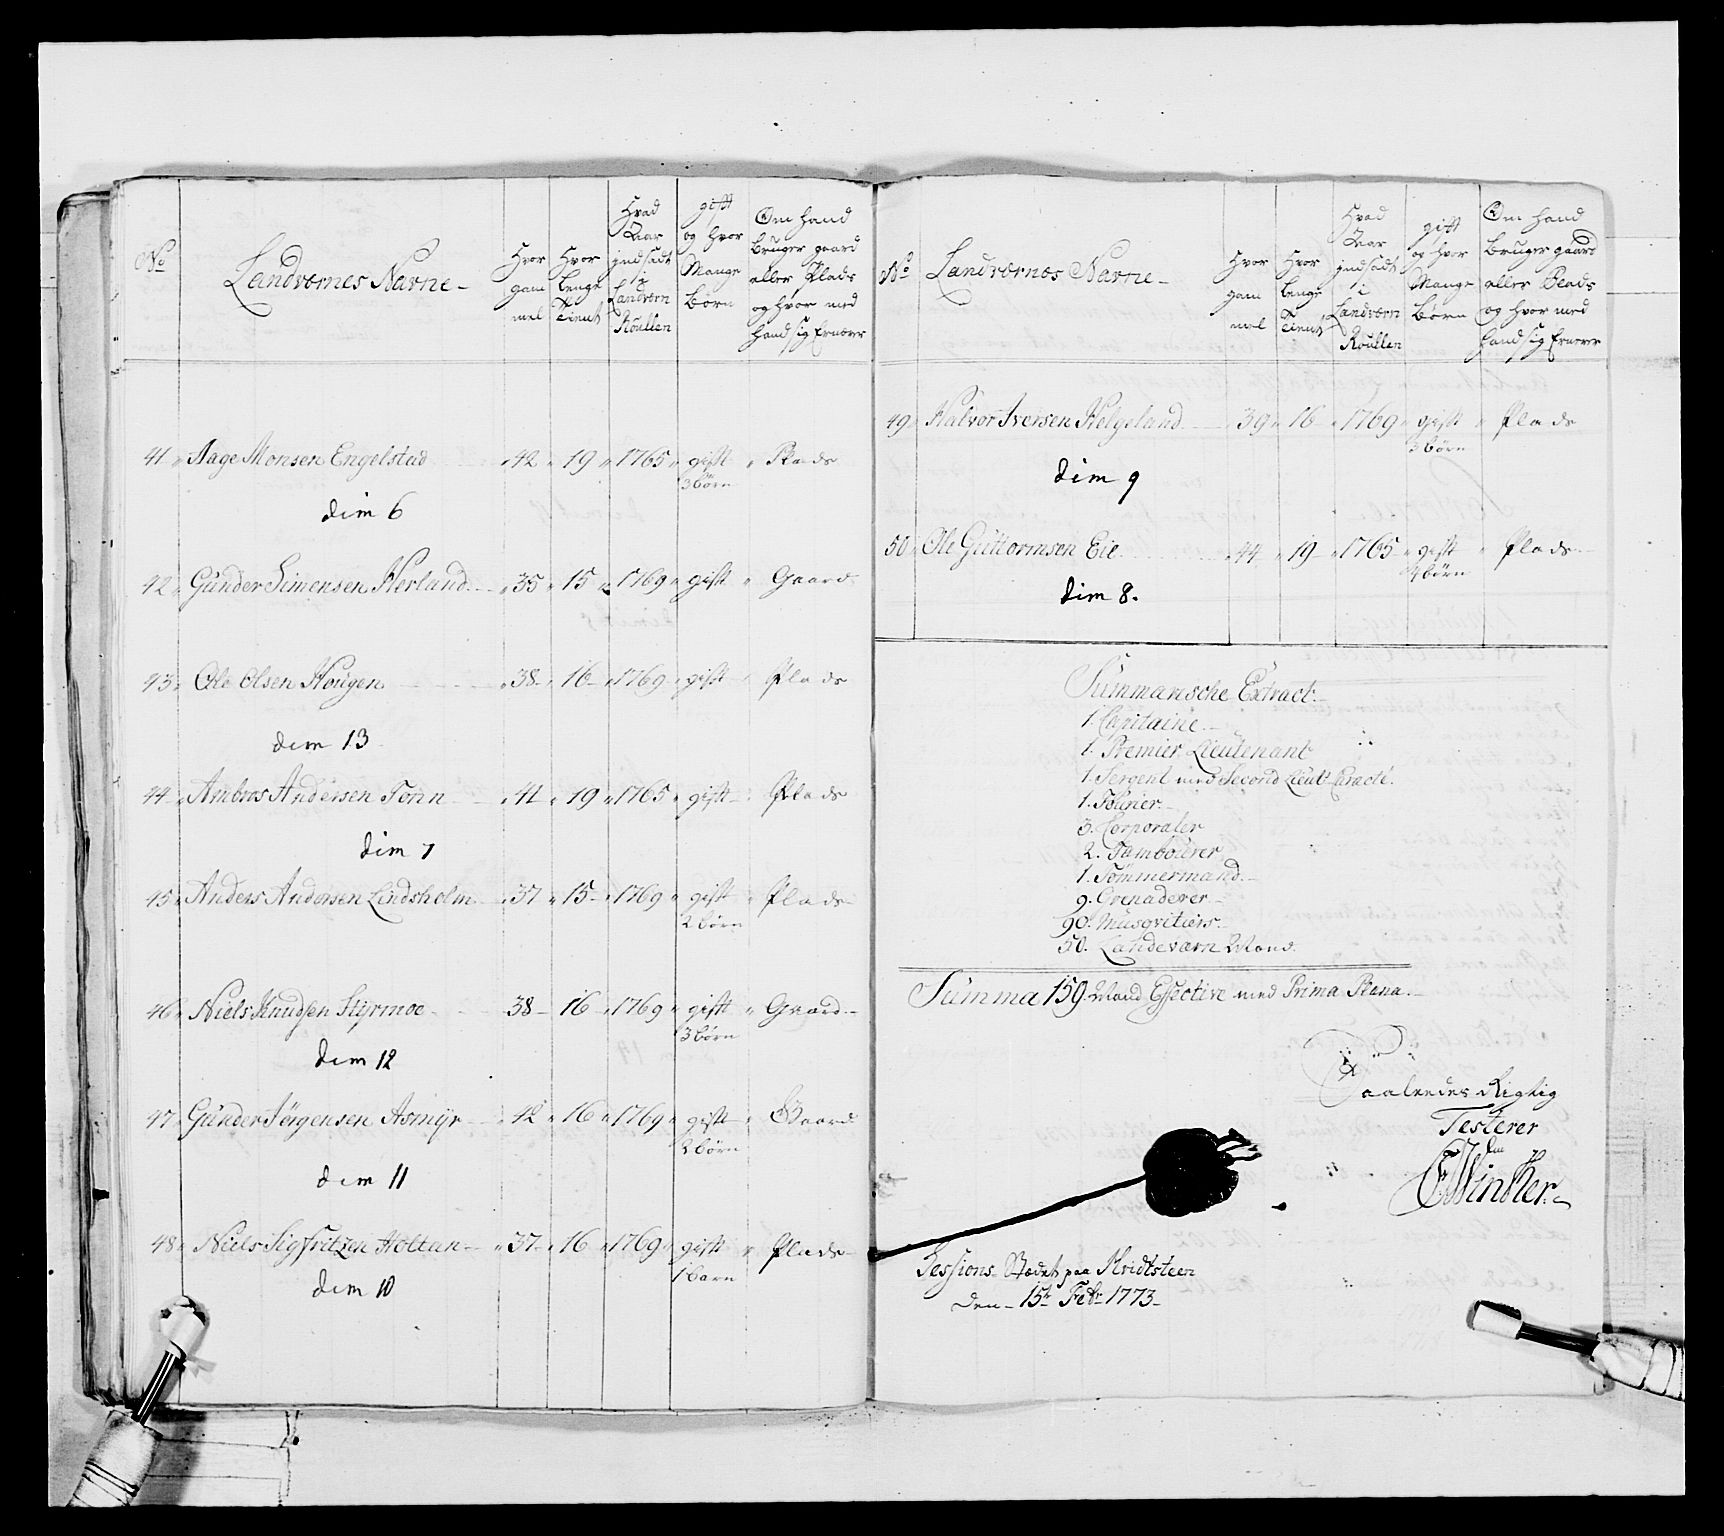 No
Landværnes Navne
Hvor gam mel
Hvor lenge Tient
Hvad Aar indsadt i Landværn Roullen
gift og Hvor Mange Børn
Om Hand Bruger gaard eller Plads og Hvor med Hand sig Ernærer
41 Aage Monsen Engelstad 42 19 1765 gift 3 børn Plads
dim 6
42 Gunder Simensen Herland 35 15 1769 gift Gaard
43 Ole Olsen Hougen 38 16 1769 gift Plads
dim 13
44 Ambros Andersen Toren 41 19 1765 gift Plads
dim 7
45 Anders Andersen Lindsholm 37 15 1769 gift 2 børn Plads
46 Niels Knudsen Styrmoe 38 16 1769 gift 3 børn Gaard
dim 12
47 Gunder Jørgensen Asmyr 42 16 1769 gift 2 børn Gaard
dim 11
48 Niels Sigfritzen Holtan 37 16 1769 gift 1 barn Plads
dim 10
No
Landværnes Navne
Hvor gam mel
Hvor lenge Tient
Hvad Aar indsadt i Landværn Roullen
gift og Hvor Mange Børn
Om Hand Bruger gaard eller Plads og Hvor med Hand sig Ernærer
49 Halvor Iversen Helgeland 39 16 1769 gift 3 børn Plads
dim 9
50 Ole Guttormsen Eie 44 19 1765 gift 4 børn Plads
dim 8.
Summarische Extract
1. Capitaine
1. Premier Lieutenant
1. Sergent med Second Lieut: Caracté.
1. Fourier
3. Corporaler
2. Tambourer
1. Tømmermand
9. Grenaderer
90. Musqvetiers
50. Landeværn Mand
Summa 159. Mand Effective med Prima Plana.
Saaledes Rigtig
Testerer
Winther
Sessions Stædet paa Hvidtsteen
den 15te Febr 1773